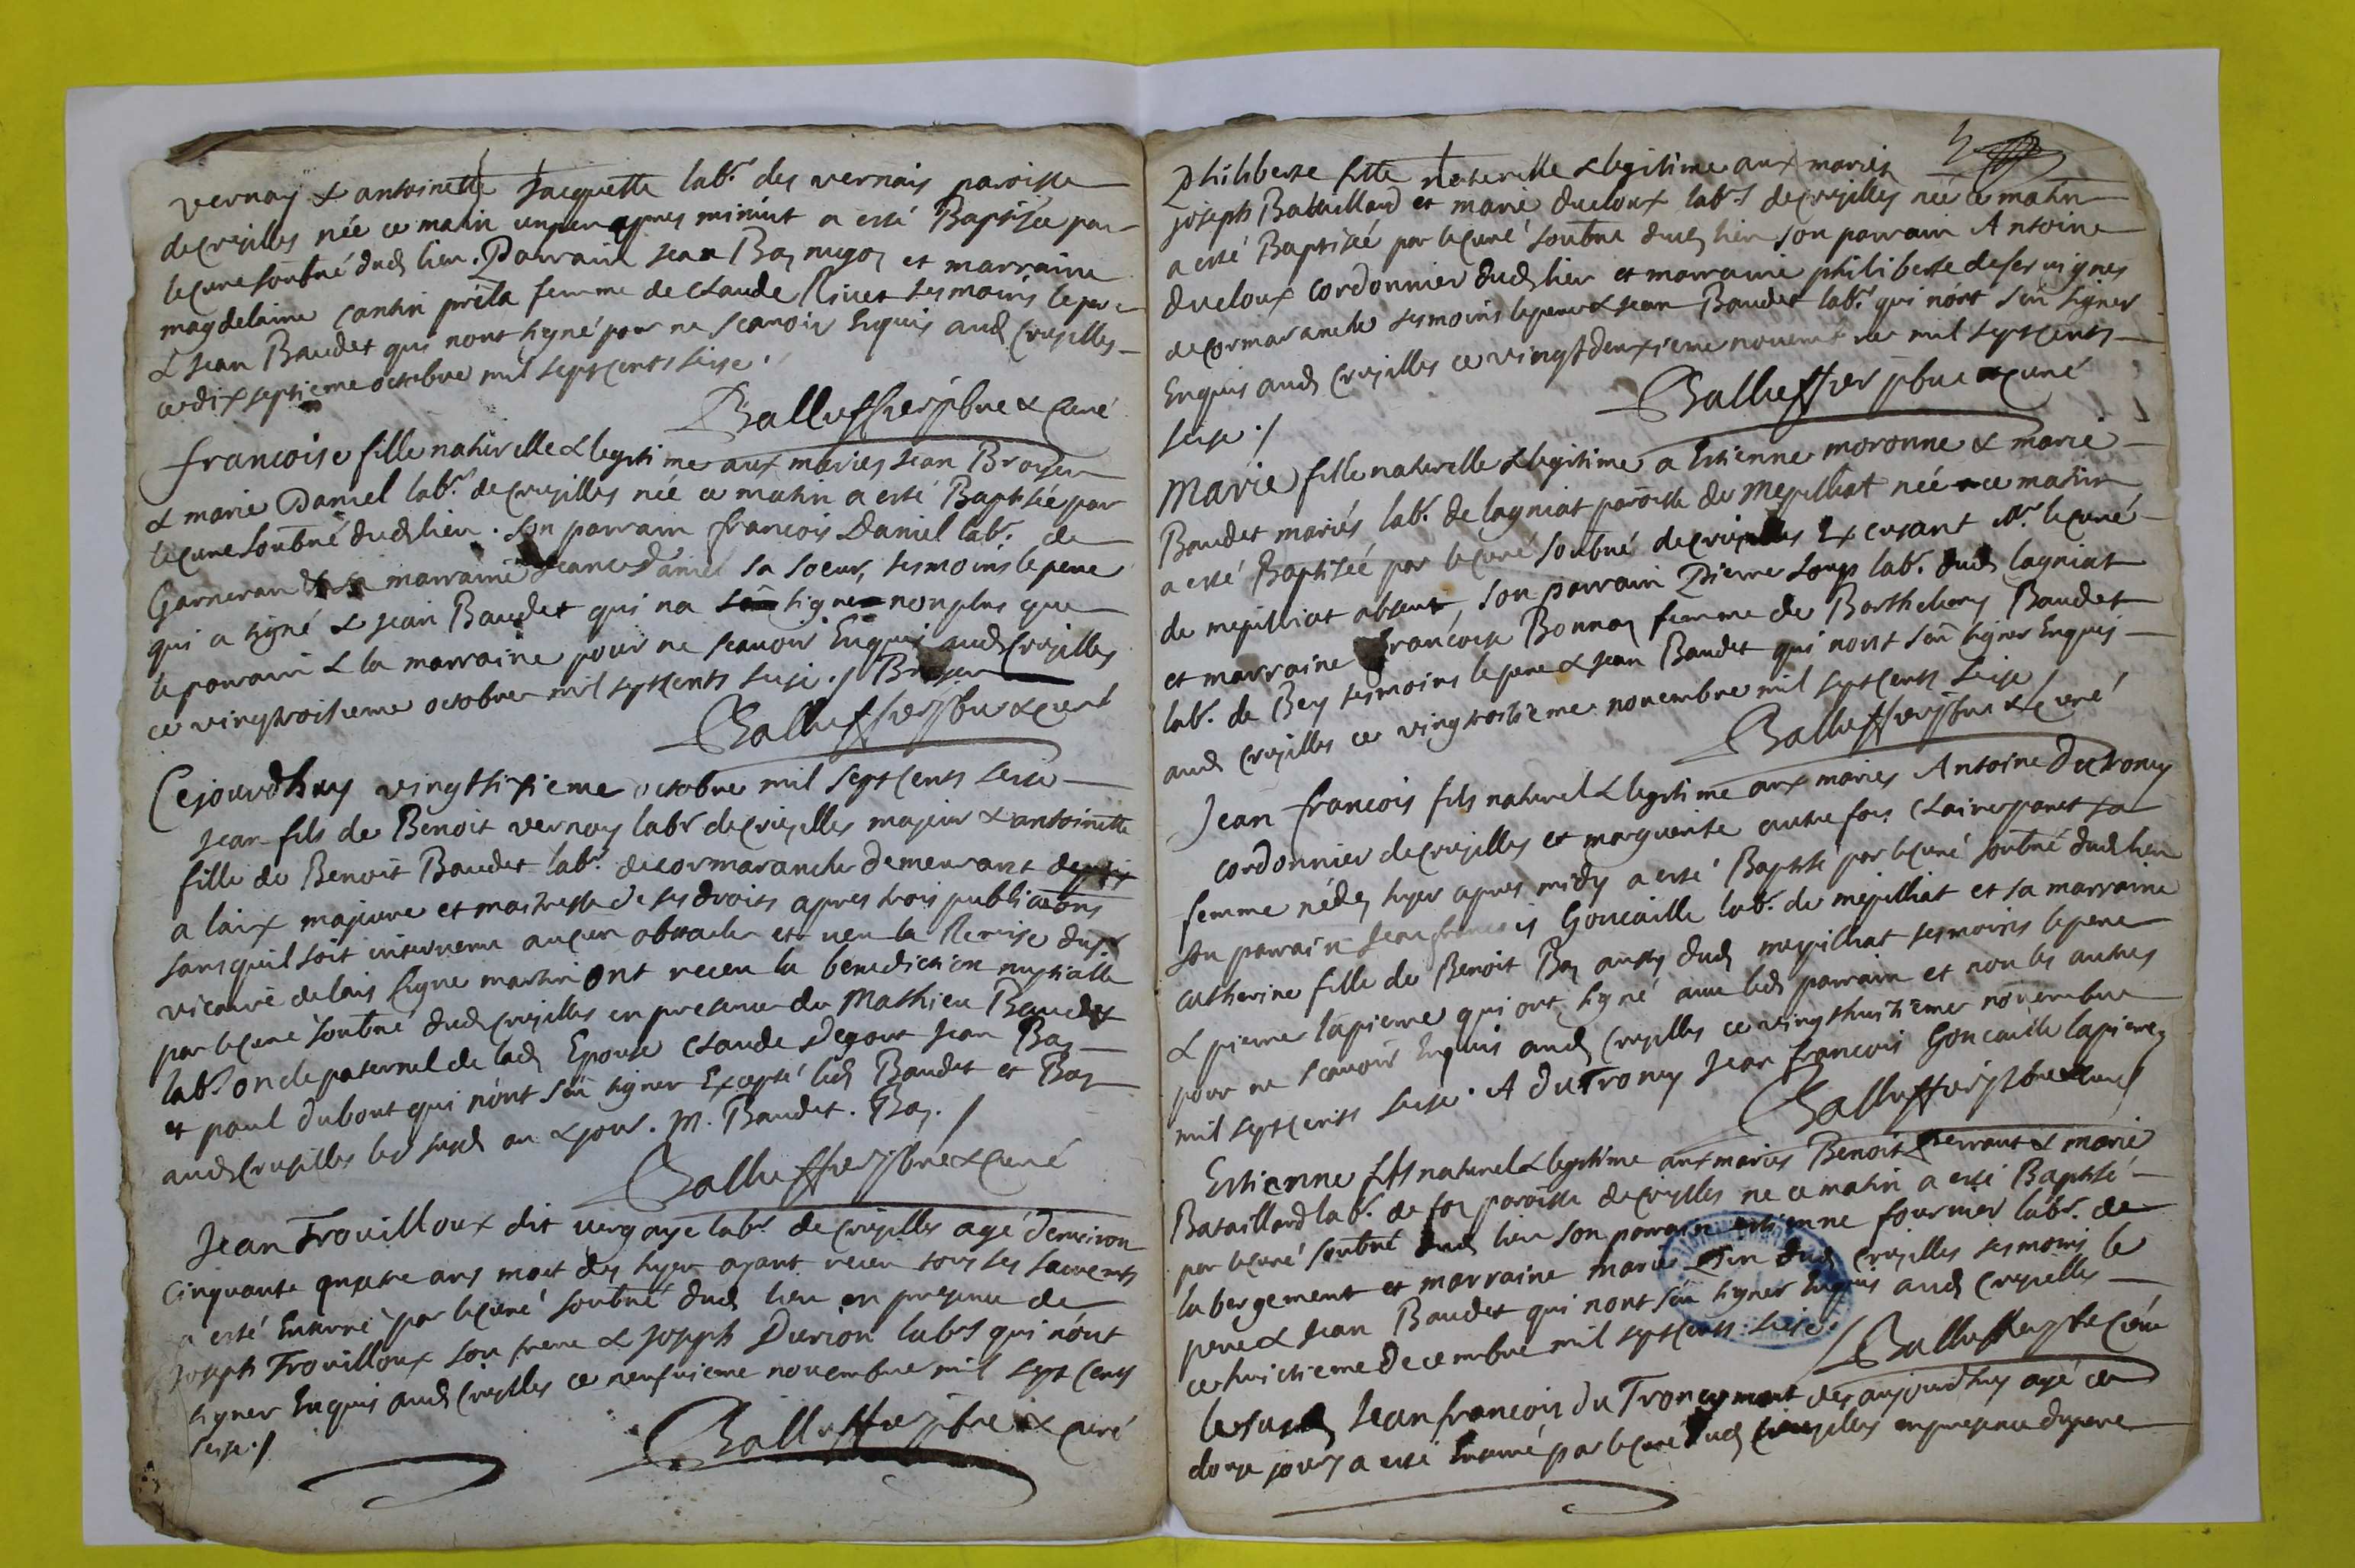 vernay & antoinette Jacquette labr. des vernais paroisse
decrusilles née ce matin un peu apres minuit a esté Baptisée par
le curé soubné dud lieu. Parrain Jean Bay et marraine
magdelaine cantin femme de claude Rivet tesmoins le pere
& Jean Baudet qui nont signé pour ne scavoir Enquis aud Crusilles
ce dix septieme octobre mil sept cents seise.
Balluffier pbre & curé
francoise fille naturelle & legitime aux maries Jean Broyer
& marie Daniel labr. decrusilles née ce matin a esté Baptisée par
le curé soubné dud lieu. Son parrain francois Daniel labr. de
Garneran & sa marraine Jeanne Daniel sa soeur, tesmoins le pere
qui a signé & Jean Baudet qui na sceu signer non plus que
le parrain & la marraine pour ne scavoir Enquis aud Crusilles
ce vingtroisieme octobre mil sept cents seise ./ Broyer
Balluffier pbre & curé
Cejourdhuy vingtsixieme octobre mil sept cents seise
Jean fils de Benoit vernay labr decrusilles majeur & antoinette
fille de Benoit Baudet labr. decormaranche demeurant
a laix majeure et maitresse de ses droits apres trois publications
sans quil soit intervenu aucun obstacle et veu la Remise du sr
vicaire de lais signe martin ont receu la benediction nuptialle
par le curé soubné dud crusilles en presence de Mathieu Baudet
labr. oncle paternel de lad Epouse claude Degout Jean Bay
et paul dubout qui nont sceu signer Excepté led Baudet et Bay
aud Crusilles les susd an & jour. M. Baudet. Bay. /
Balluffier pbre & curé
Jean Trouilloux dit vergaye labr decrusilles agé denviron
Cinquante quatre ans mort des hyer ayant receu tous ses sacrements
a esté Enterré par le curé soubné dud lieu en presence de
Joseph Trouilloux son frere & Joseph Durion labrs qui nont
signer Enquis aud Crusilles ce neufvieme novembre mil sept cents
seise ./
Balluffier pbre & curé
Philiberte fille naturelle & legitime aux mariés
joseph Bataillard et marie ducloux labrs decrusilles née ce matin
a esté Baptisée par le curé soubné dud lieu son parrain Antoine
ducloux cordonnier dud lieu et marraine philiberte deservignes
decormaranche tesmoins le pere & Jean Baudet labr. qui nont sceu signer
Enquis aud Crusilles ce vingtdeuxieme novembre mil sept cents
seise ./
Balluffier pbre & curé
Marie fille naturelle & legitime a Estienne moronne & marie
Baudet mariés labr. de lagniat paroisse de Mepilliat née ce matin
a esté Baptisée par le curé soubné decrusilles Excusant Mr. le curé
de mepilliat absent, son parrain Pierre Loup labr. dud lagniat
et marraine francoise Bonnay femme de Barthelemy Baudet
labr. de Bey tesmoins le pere & Jean Baudet qui nont sceu signer Enquis
aud Crusilles ce vingtroisieme novembre mil sept cents seise /
Balluffier pbre & curé
Jean francois fils naturel & legitime aux maries Antoine DuTroncy
cordonnier decrusilles et marguerite autrefois sa
femme né des hyer apres midy a esté Baptisé par le curé soubné dud lieu
son parrain Jean francois Goncaille labr. de mepilliat et sa marraine
catherine fille de Benoit Bay aussy dud mepilliat tesmoins le pere
& pierre lapierre qui ont signé avec led parrain et non les autres
pour ne scavoir Enquis aud Crusilles ce vingthuitieme novembre
mil sept cents seise. A duTroncy Jean francois Goncaille lapierre
Balluffier pbre & curé
Estienne fils naturel & legitime aux maries Benoit & marie
Bataillard labr. de paroisse decrusilles ne ce matin a esté Baptisé
par le curé soubné dud lieu son parrain estienne fournier labr. de
labergement et marraine marie dud Crusilles tesmoins le
pere & Jean Baudet qui nont sceu signer Enquis aud Crusilles
ce huictieme Decembre mil sept cents seise.
Balluffier pbre & curé
le susd Jean francois du Troncy mort des aujourdhuy agé de
douze jours a esté Enterré par le curé dud Crusilles en presence du pere